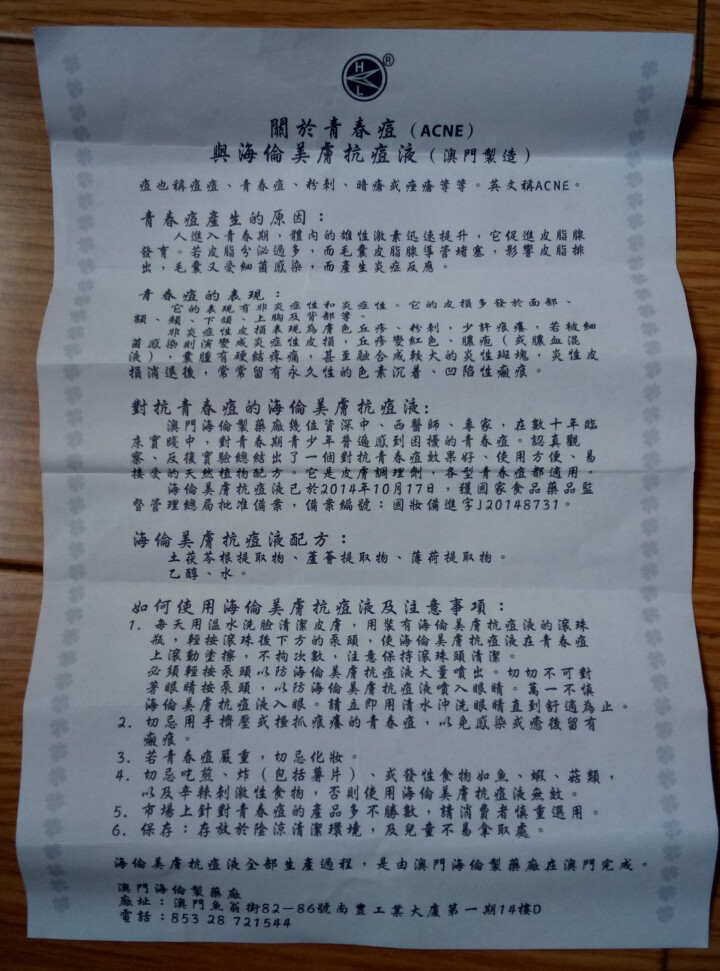 H
L
®
關於青春痘（ACNE）
與海倫美膚抗痘液（澳門製造）
痘也稱痘痘、青春痘、粉刺、暗瘡或痤瘡等等。英文稱ACNE。
青春痘產生的原因：
人進入青春期，體內的雄性激素迅速提升，它促進皮脂腺
發育。若皮脂分泌過多，而毛囊皮脂腺導管堵塞，影響皮脂排
出，毛囊又受細菌感染，而產生炎症反應。
青春痘的表現：
它的表現有非炎症性和炎症性。它的皮損多發於面部、
額、頰、下頷、上胸及背部等。
非炎症性皮損表現為膚色丘疹、粉刺，少許痕癢，若被細
菌感染則演變成炎症性皮損，丘疹變紅色、膿疱（或膿血混
液），囊腫有硬結疼痛，甚至融合成較大的炎性斑塊，炎性皮
損消退後，常常留有永久性的色素沉着、凹陷性瘢痕。
對抗青春痘的海倫美膚抗痘液：
澳門海倫製藥廠幾位資深中、西醫師、專家，在數十年臨
床實踐中，對青春期青少年普遍感到困擾的青春痘。認真觀
察、反復實驗總結出了一個對抗青春痘效果好、使用方便、易
接受的天然植物配方。它是皮膚調理劑，各型青春痘都適用。
海倫美膚抗痘液已於2014年10月17日，獲國家食品藥品監
督管理總局批准備案，備案編號：國妝備進字J20148731。
海倫美膚抗痘液配方：
土茯苓根提取物、蘆薈提取物、薄荷提取物。
乙醇、水。
如何使用海倫美膚抗痘液及注意事項：
1. 每天用溫水洗臉清潔皮膚，用裝有海倫美膚抗痘液的滾珠
瓶，輕按滾珠後下方的泵頭，使海倫美膚抗痘液在青春痘
上滾動塗擦，不拘次數，注意保持滾珠頭清潔。
必須輕按泵頭以防海倫美膚抗痘液大量噴出。切切不可對
著眼睛按泵頭，以防海倫美膚抗痘液噴入眼睛。萬一不慎
海倫美膚抗痘液入眼。請立即用清水沖洗眼睛直到舒適為止。
2. 切忌用手擠壓或搔抓痕癢的青春痘，以免感染或癒後留有
瘢痕。
3. 若青春痘嚴重，切忌化妝。
4. 切忌吃煎、炸（包括薯片）、或發性食物如魚、蝦、菇類，
以及辛辣刺激性食物，否則使用海倫美膚抗痘液無效。
5. 市場上針對青春痘的產品多不勝數，請消費者慎重選用。
6. 保存：存放於陰涼清潔環境，及兒童不易拿取處。
海倫美膚抗痘液全部生產過程，是由澳門海倫製藥廠在澳門完成。
澳門海倫製藥廠
廠址：澳門魚翁街82—86號南豐工業大廈第一期14樓D
電話：853 28 721544